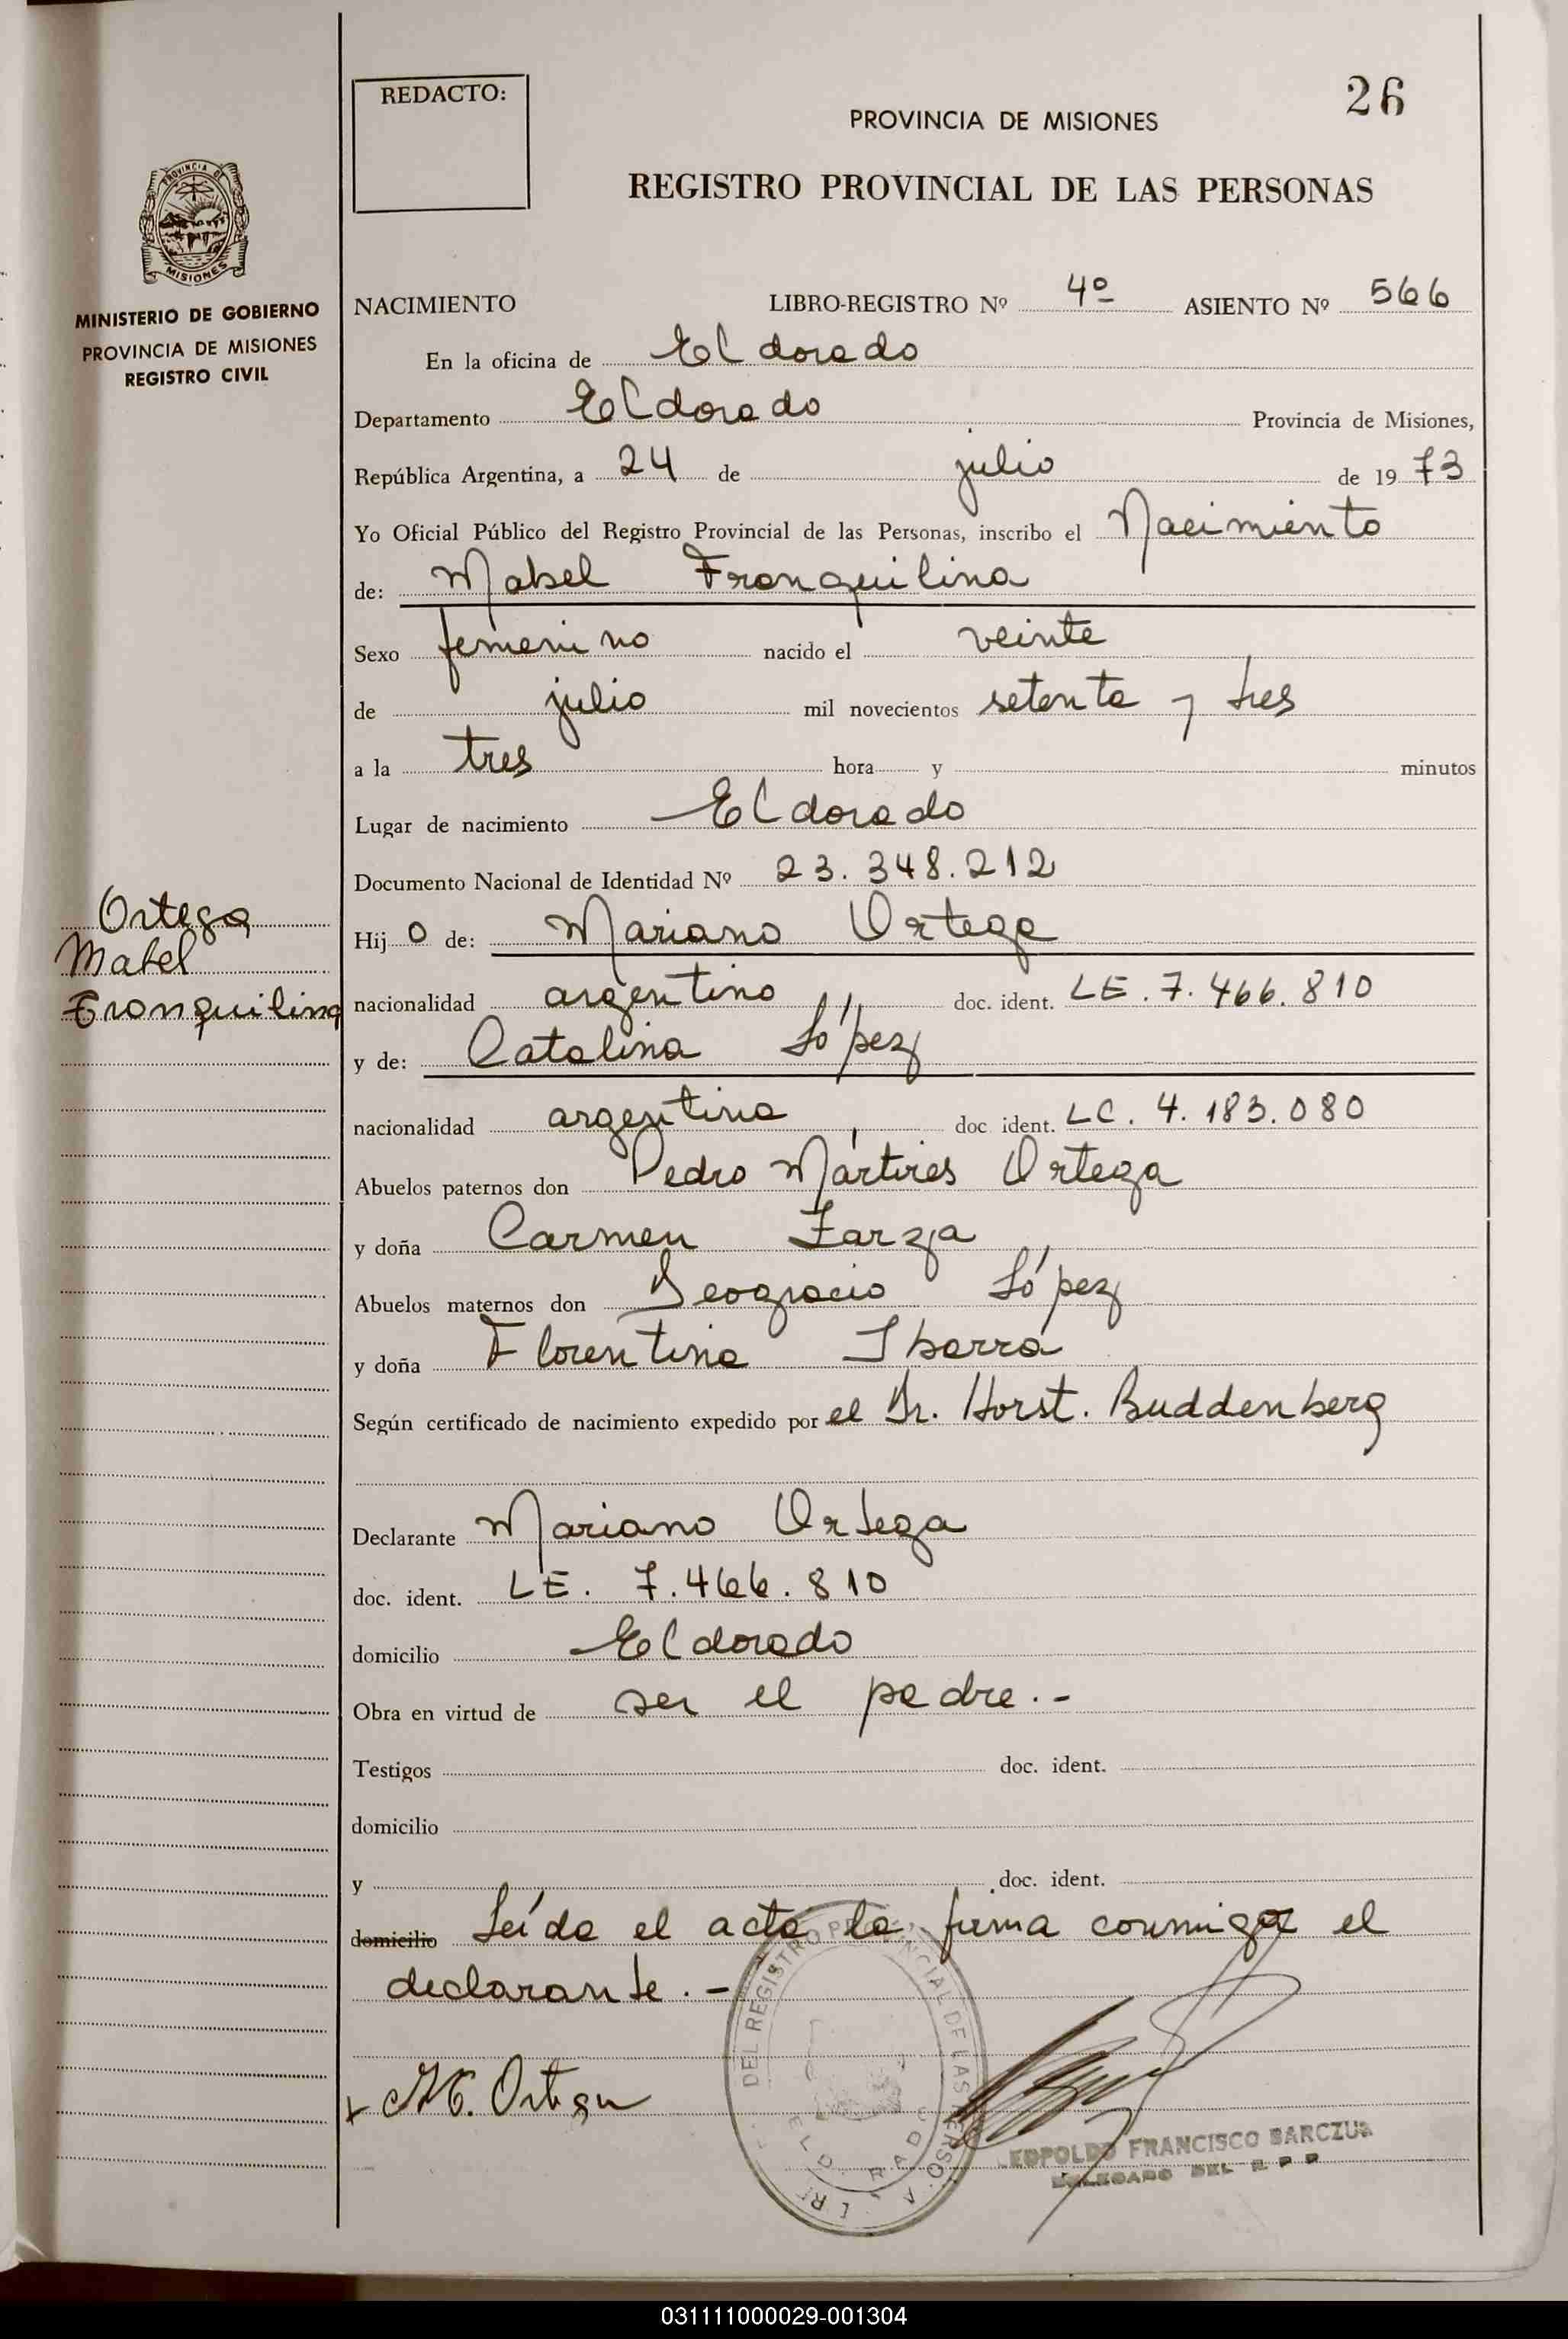 REDACTO:
26
PROVINCIA DE MISIONES
REGISTRO PROVINCIAL DE LAS PERSONAS
PROVINCIA DE
MISIONES
MINISTERIO DE GOBIERNO
PROVINCIA DE MISIONES
REGISTRO CIVIL
NACIMIENTO LIBRO-REGISTRO Nº 4º ASIENTO Nº 566
En la oficina de Eldorado
Departamento Eldorado Provincia de Misiones,
República Argentina, a 24 de julio de 1973
Yo Oficial Público del Registro Provincial de las Personas, inscribo el Nacimiento
de: Mabel Franquilina
Sexo femenino nacido el veinte
de julio mil novecientos setenta y tres
a la tres hora y minutos
Lugar de nacimiento Eldorado
Documento Nacional de Identidad Nº 23.348.212
Ortega
Mabel
Franquilina
Hijo de: Mariano Ortega
nacionalidad argentino doc. ident. LE. 7.466.810
y de: Catalina López
nacionalidad argentina doc. ident. LC. 4.183.080
Abuelos paternos don Pedro Mártires Ortega
y doña Carmen Zarza
Abuelos maternos don Deogracio López
y doña Florentina Ibarra
Según certificado de nacimiento expedido por el Dr. Horst. Buddenberg
Declarante Mariano Ortega
doc. ident. LE. 7.466.810
domicilio Eldorado
Obra en virtud de ser el padre.-
Testigos doc. ident.
domicilio
y doc. ident.
domicilio Leída el acta la firma conmigo el
declarante.-
DEL REGISTRO PROVINCIAL DE LAS PERSONAS
Ortega
LEOPOLDO FRANCISCO BARCZUK
DELEGADO DEL R P P
031111000029-001304